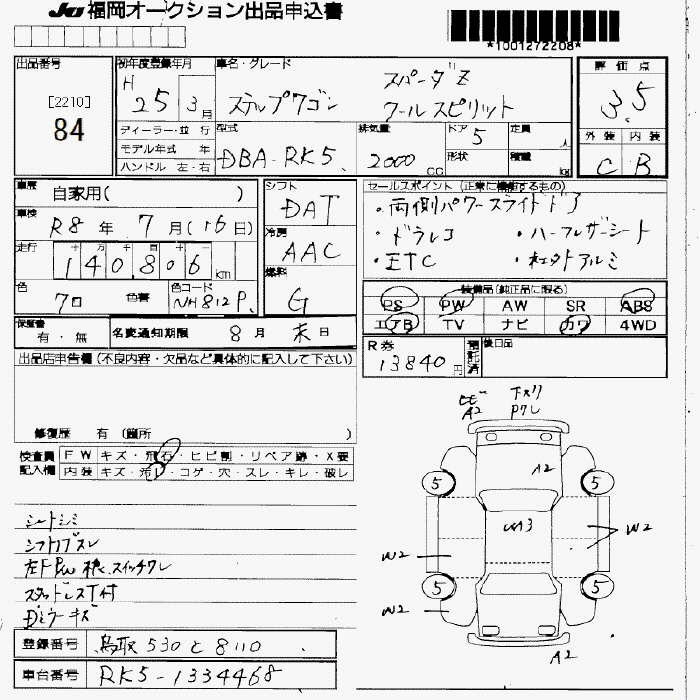 JU 福岡オークション出品申込書
*1001272208*
出品番号
[2210]
84
初年度登録年月
H 25 3月
車名・グレード
ステップワゴン
スパーダ Z
クールスピリット
評価点
3.5
外装 内装
C B
ディーラー・並 行
モデル年式 年
ハンドル 左・右
型式
DBA-RK5
排気量
2000 CC
ドア 5
定員 人
形状
積載 kg
車歴
自家用( )
車検
R8 年 7月(16日)
走行
十万 千百十
140,806 km
色
7口
色替
色コード
NH812P
シフト
DAT
冷房
AAC
燃料
G
セールスポイント (正常に機能するもの)
・両側パワースライドドア
・ドラレコ ・ハーフレザーシート
・ETC ・社外アルミ
装備品(純正品に限る)
PS PW AW SR ABS
エアB TV ナビ カワ 4WD
保証書
有・無
名変通知期限 8月 末日
R券
13840円
預託済
後日品
出品店申告欄(不良内容・欠品など具体的に記入して下さい)
修復歴 有 (箇所 )
検査員記入欄
FW キズ・飛石・ヒビ割・リペア跡・X要
内装 キズ・汚れ・コゲ・穴・スレ・キレ・破レ
シートシミ
シフトノブスレ
スタッドレスT付
Dミラーキズ
A2
下スリ
ワレ
A2
5 5
W2
W2
W2
5 5
A2
登録番号 鳥取 530 と 8110
車台番号 RK5-1334468